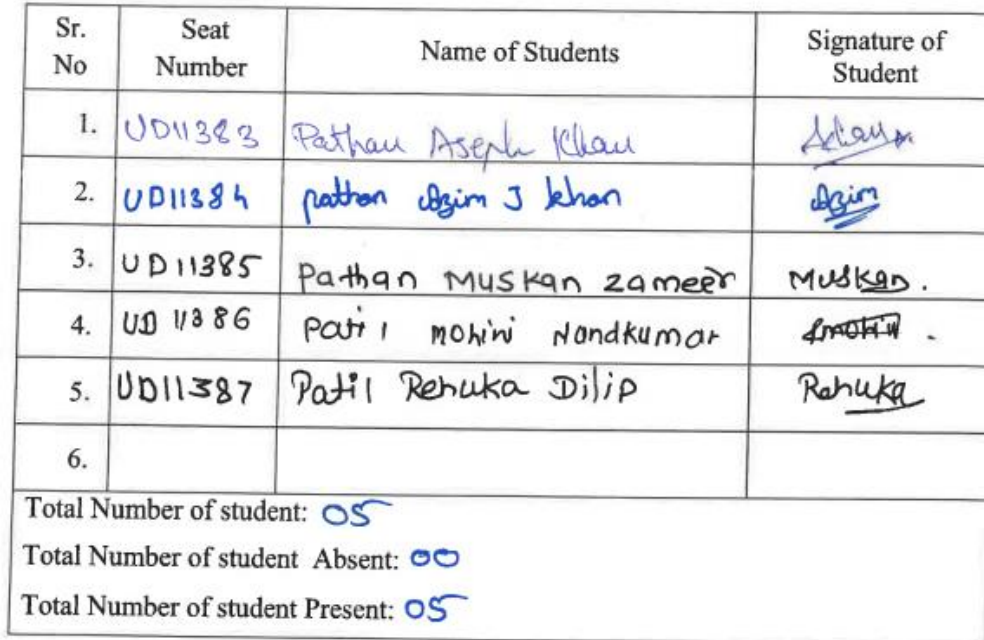 Sr. No Seat Number Name of Students Signature of Student
1. UD11383 Pathan Aseph Khan
2. UD11384 pathan Azim J khan Azim
3. UD11385 Pathan Muskan zameer Muskan.
4. UD11386 Patil mohini Nandkumar
5. UD11387 Patil Renuka Dilip Renuka
6.
Total Number of student: 05
Total Number of student Absent: 00
Total Number of student Present: 05